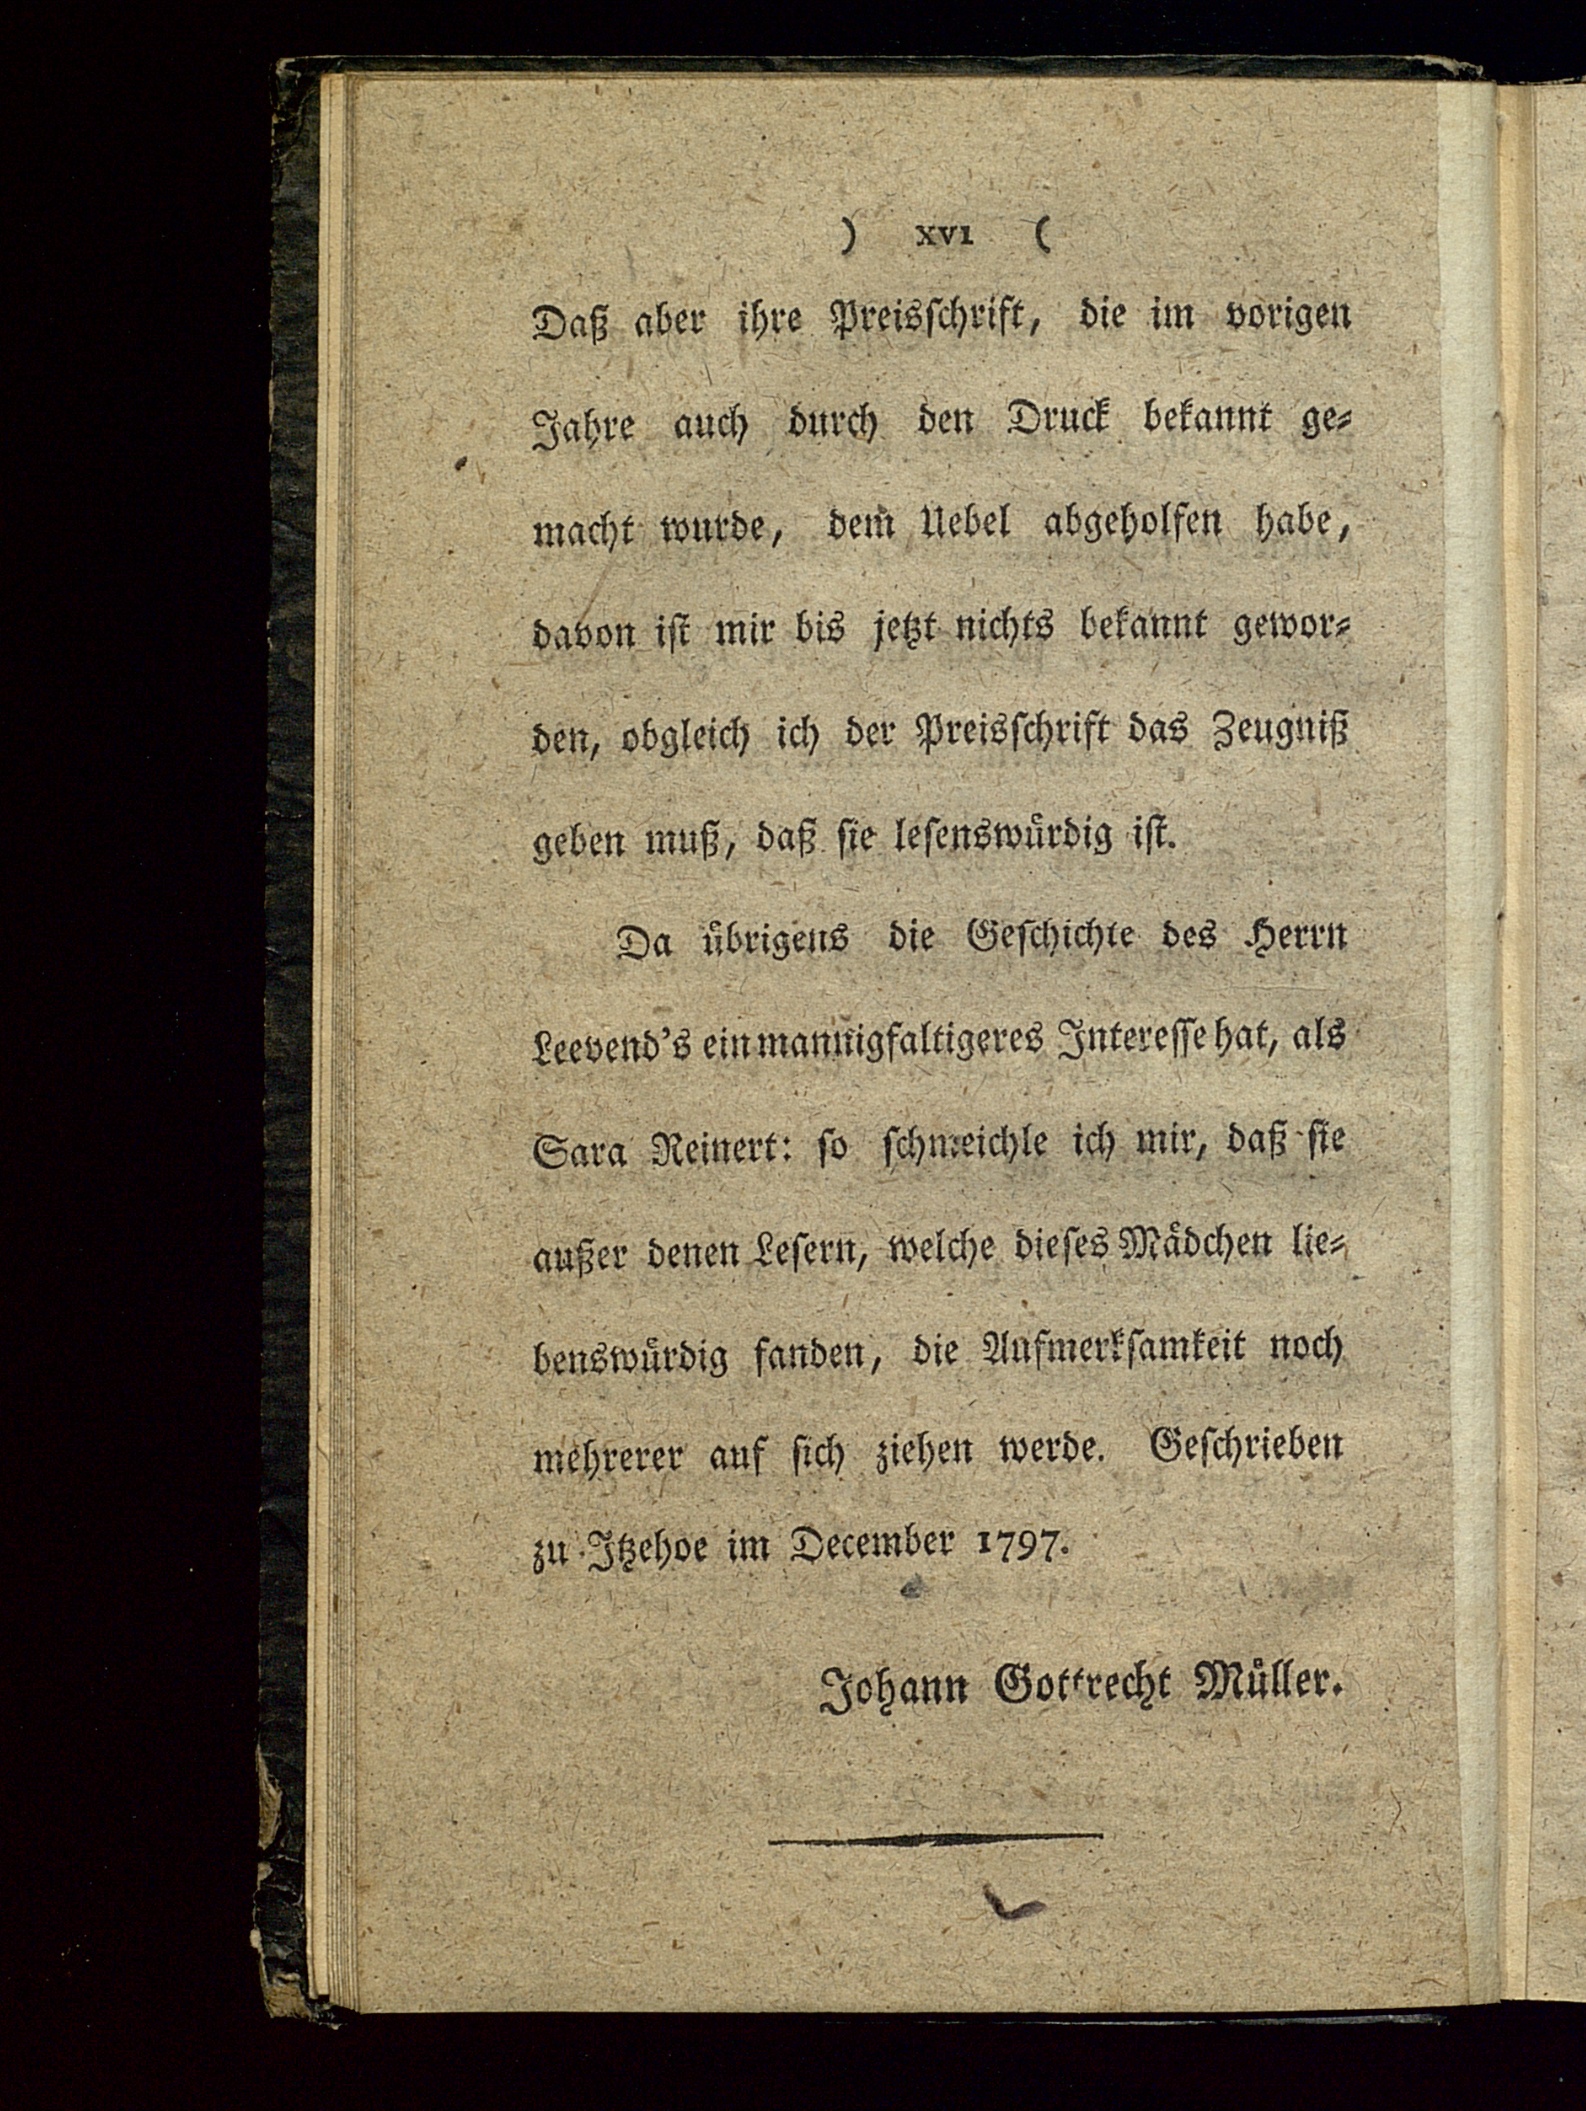 ) XVI (
Daß aber ihre Preisſchrift, die im vorigen
Jahre auch durch den Druck bekannt ge⸗
macht wurde, dem Uebel abgeholfen habe,
davon iſt mir bis jetzt nichts bekannt gewor⸗
den, obgleich ich der Preisſchrift das Zeugniß
geben muß, daß ſie leſenswuͤrdig iſt.
Da uͤbrigens die Geſchichte des Herrn
Leevend's ein mannigfaltigeres Intereſſe hat, als
Sara Reinert: ſo ſchmeichle ich mir, daß ſie
außer denen Leſern, welche dieſes Maͤdchen lie⸗
benswuͤrdig fanden, die Aufmerkſamkeit noch
mehrerer auf ſich ziehen werde. Geſchrieben
zu Itzehoe im December 1797.
Johann Gottrecht Muͤller.